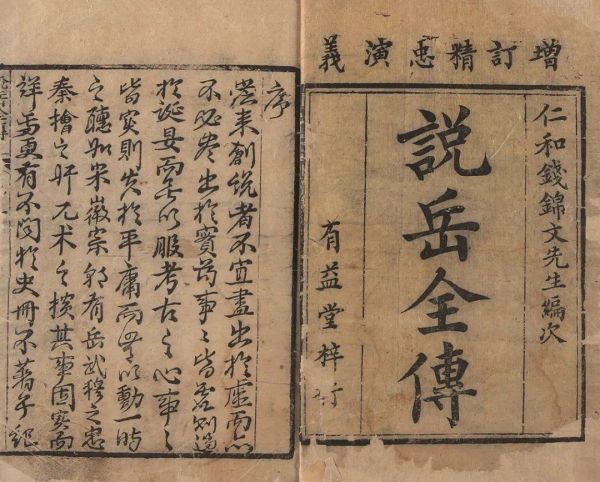 增訂精忠演義
仁和錢錦文先生編次
説岳全傳
有益堂梓行
序
從來創説者不宜盡出於虛而亦
不必盡出於實苟事事皆虛則過
於誕妄而無以服考古之心事事
皆實則失於平庸而無以動一時
之聽如宋徽宗朝有岳武穆之忠
秦檜之奸兀术之橫其事固實而
詳焉更有不聞於史冊不著於紀